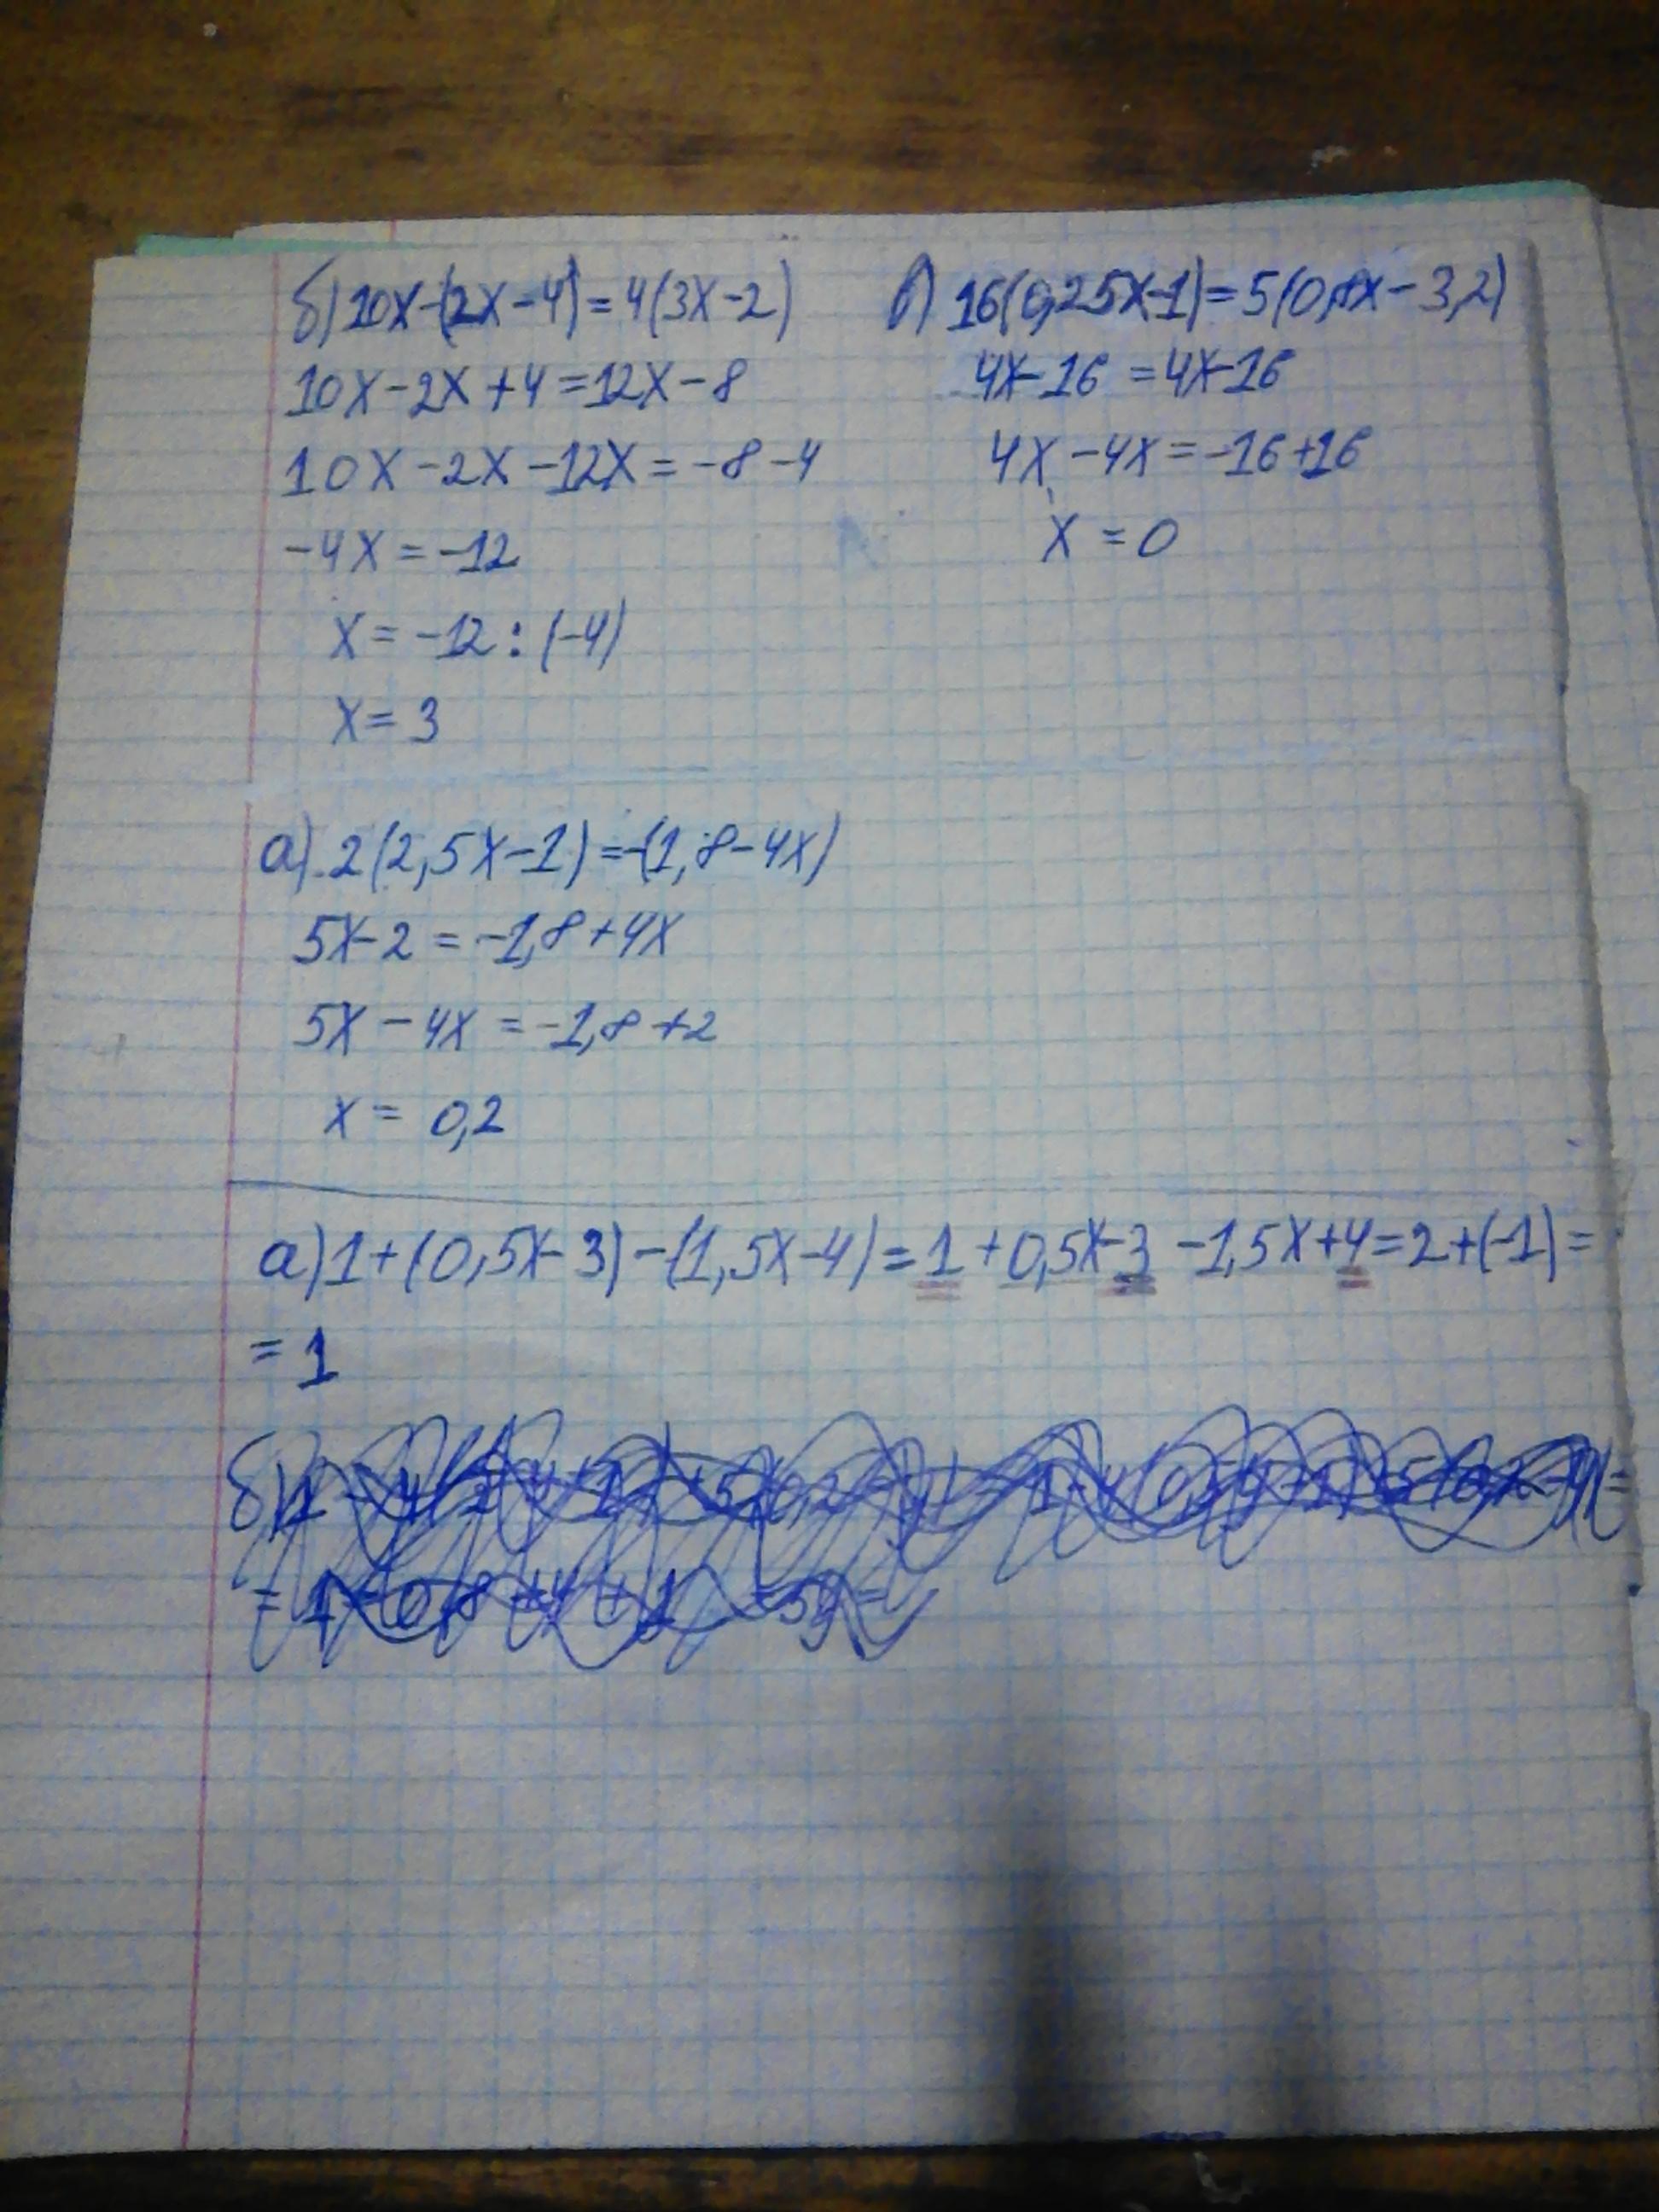 б) 10x-(2x-4)=4(3x-2)
10x-2x+4=12x-8
10x-2x-12x=-8-4
-4x=-12
x=-12:(-4)
x=3
в) 16(0,25x-1)=5(0,8x-3,2)
4x-16=4x-16
4x-4x=-16+16
x=0
а) 2(2,5x-1)=-(1,8-4x)
5x-2=-1,8+4x
5x-4x=-1,8+2
x=0,2
а) 1+(0,5x-3)-(1,5x-4)=1+0,5x-3-1,5x+4=2+(-1)=
=1
б)